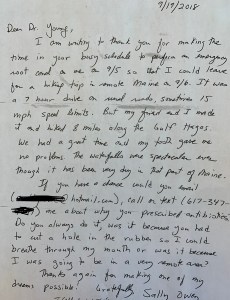 9/19/2018
Dear Dr. Young,
I am writing to thank you for making the
time in your busy schedule to perform an emergency
root canal on me on 9/5 so that I could leave
for a hiking trip in remote Maine on 9/6. It was
a 7 hour drive on rural roads, sometimes 15
mph speed limits. But my friend and I made
it and hiked 8 miles along the Gulf Hagas
We had a great time and my tooth gave me
no problems. The waterfalls were spectacular even
though it has been very dry in that part of Maine.
If you have a chance could you email
hotmail.com), call or text (617-347-
me about why you prescribed antibiotics
Do you always do it, was it because you had
to cut a hole in the rubber so I could
breathe through my mouth or was it because
I was going to be in a very remote area?
Thanks again for making one of my
dreams possible! Gratefully,
Sally Owen